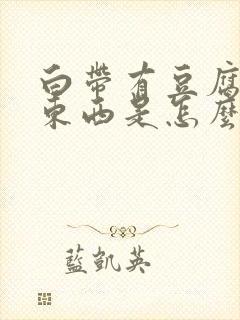 白帶有豆腐
東西是怎麼
藍凱英